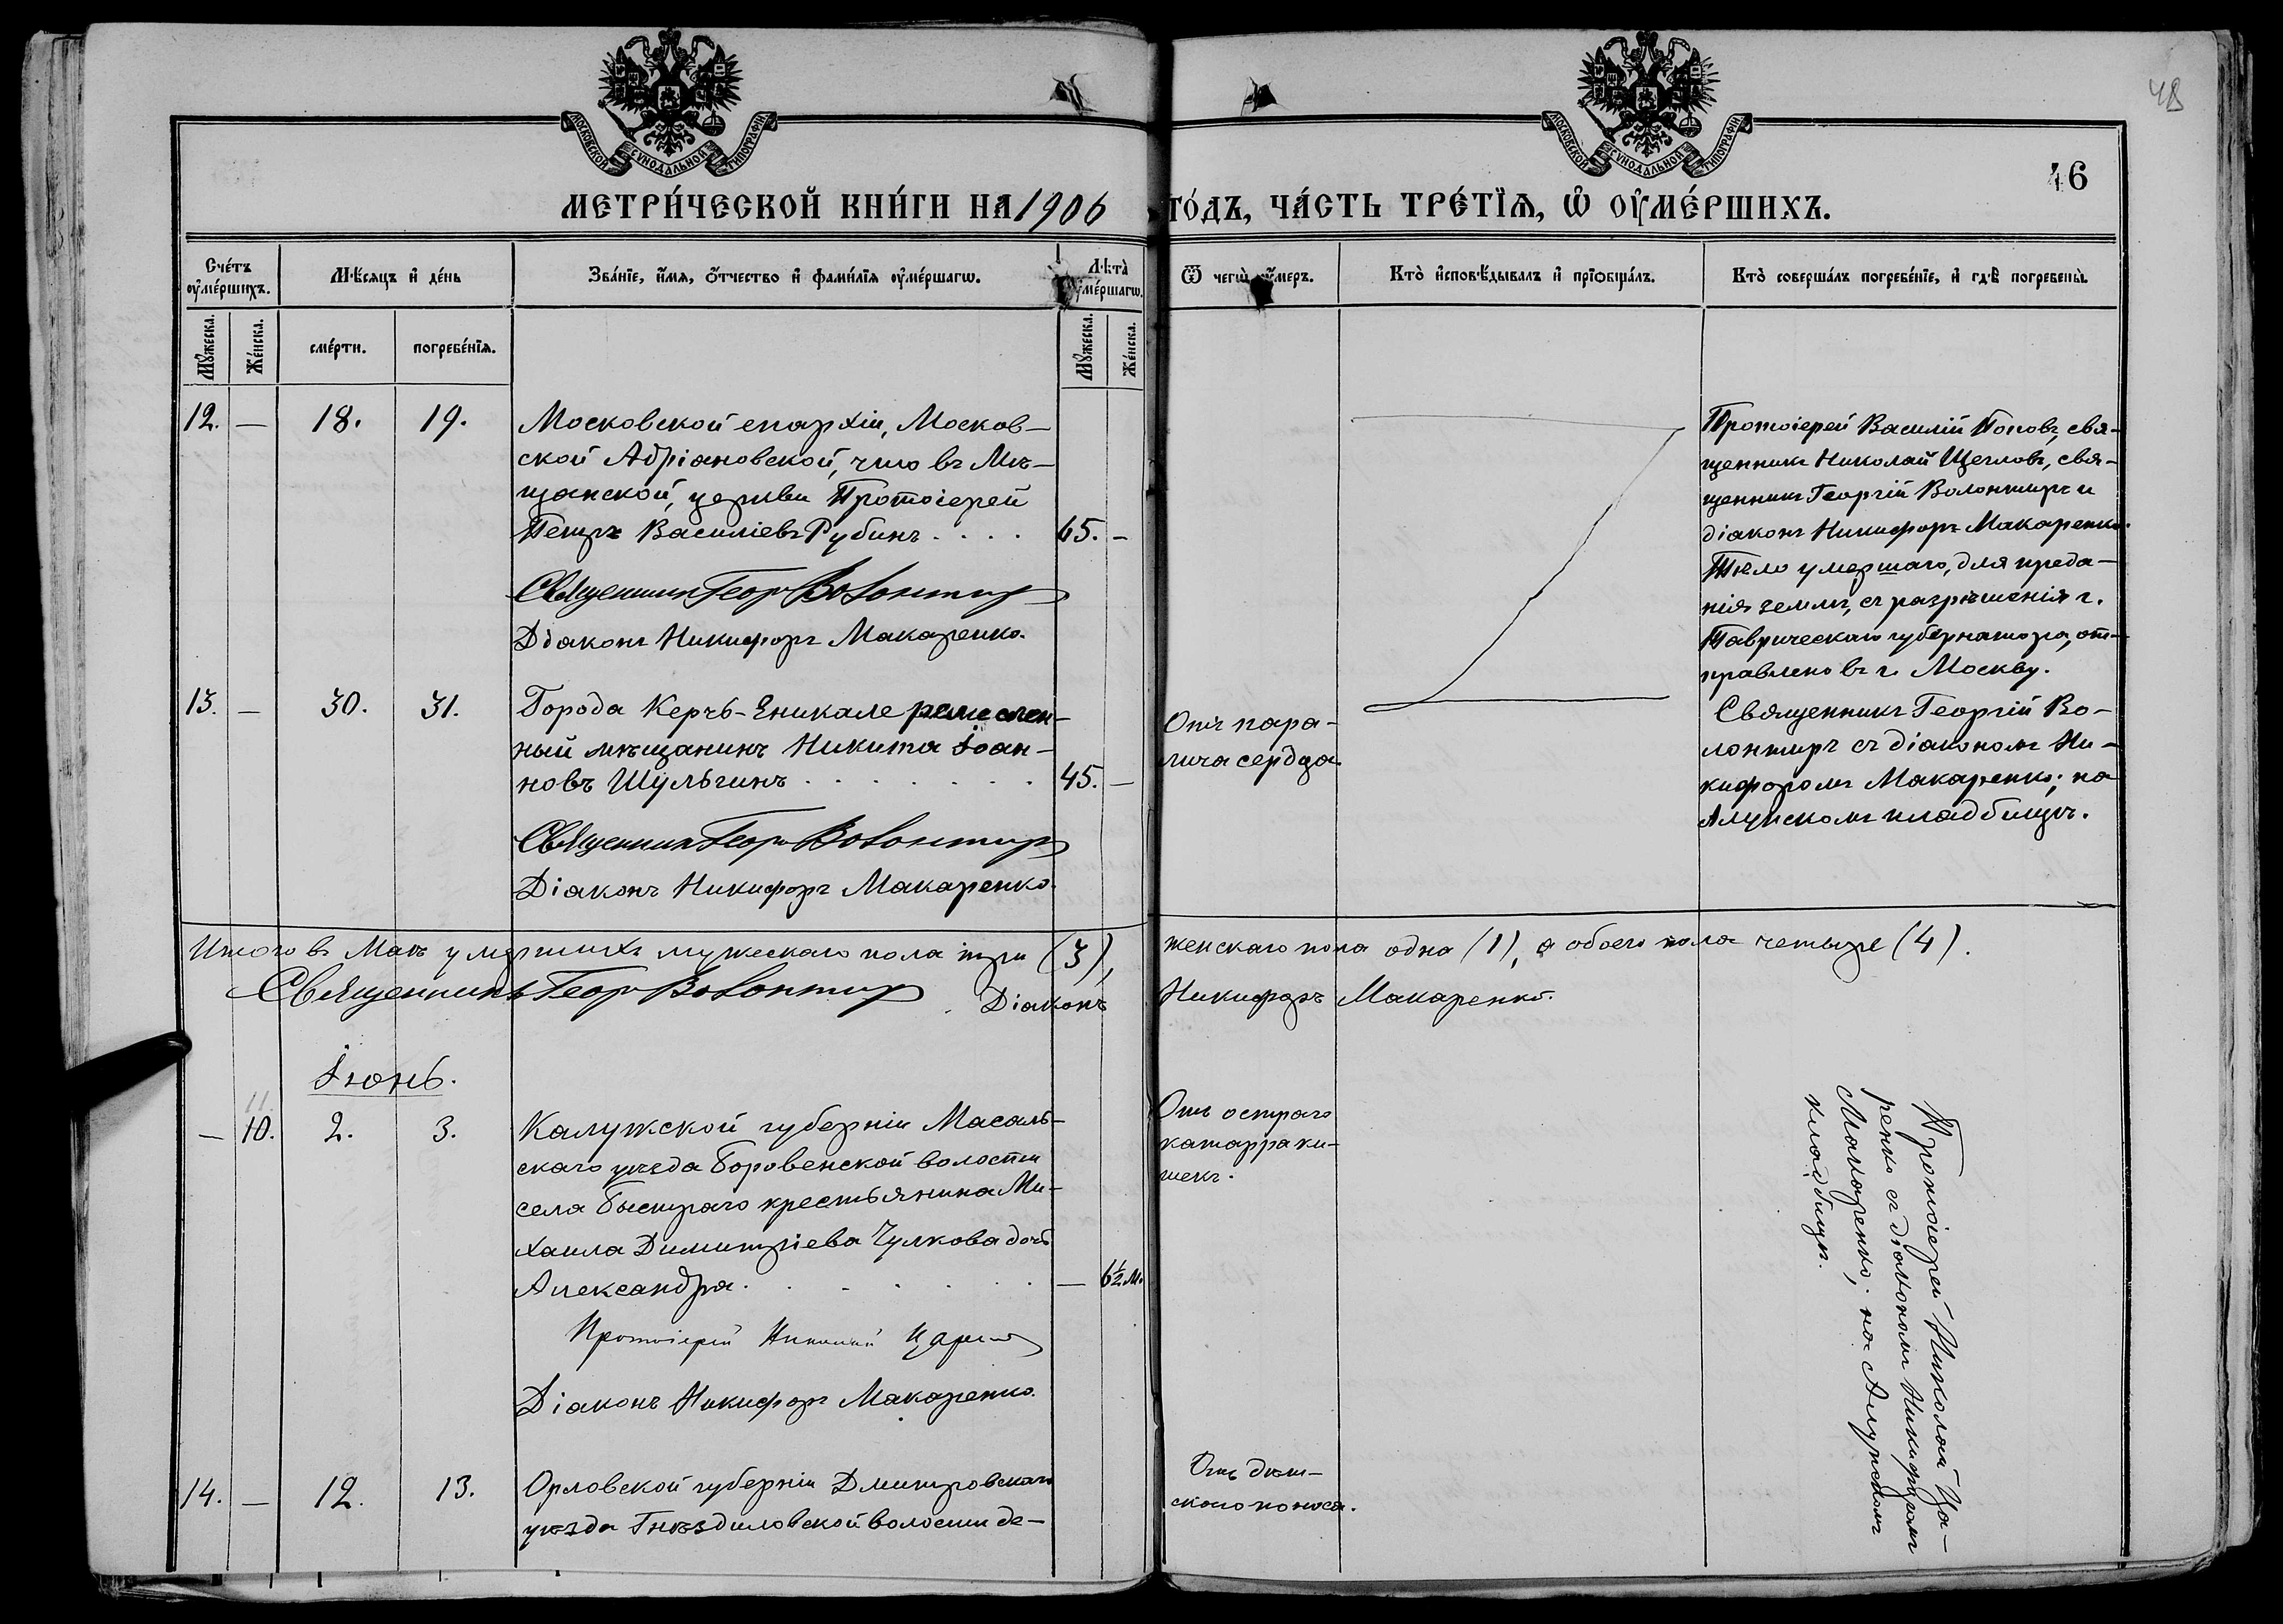 48
МОСКОВСКОЙ СѴНОДАЛЬНОЙ ТИПОГРАФІИ
МОСКОВСКОЙ СѴНОДАЛЬНОЙ ТИПОГРАФІИ
46
МЕТРИ́ЧЕСКОЙ КНИ́ГИ НА 1906 ГО́ДЪ, ЧА́СТЬ ТРЕ́ТЇѦ, Ѡ҆ ОУ҆МЕ́РШИХЪ.
Сче́тъ оу҆ме́ршихъ.
Мѣ́сяцъ и҆ де́нь
Зва́нїе, и҆́мя, ѻ҆́тчество и҆ фами́лїя оу҆ме́ршагѡ.
Лѣта̀ оу҆ме́ршагѡ.
Ѿ чегѡ̀ оу҆́меръ.
Кто̀ и҆сповѣ́дывалъ и҆ прїѡбща́лъ.
Кто̀ соверша́лъ погребе́нїе, и҆ гдѣ̀ погребены̀.
Мꙋ́жеска.
Же́нска.
сме́рти.
погребе́нїя.
Мꙋ́жеска.
Же́нска.
12. — 18. 19.
Московской епархіи, Москов-
ской Адріановской, что въ Мѣ-
щанской, церкви Протоіерей
Петръ Василіевъ Рубинъ . . . . 65. —
Священникъ Геор Волонтир
Діаконъ Никифоръ Макаренко.
Протоіерей Василій Поповъ, свя-
щенникъ Николай Щегловъ, свя-
щенникъ Георгій Волонтиръ и
діаконъ Никифоръ Макаренко.
Тѣло умершаго, для преда-
нія землѣ, съ разрѣшенія г.
Таврическаго губернатора, от-
правлено въ г. Москву.
13. — 30. 31.
Города Керчь-Еникале ремеслен-
ный мѣщанинъ Никита Іоан-
новъ Шульгинъ . . . . . . . 45. —
Священник Геор Волонтир
Діаконъ Никифоръ Макаренко.
Отъ пара-
лича сердца.
Священникъ Георгій Во-
лонтиръ съ діакономъ Ни-
кифоромъ Макаренко; на
Алупскомъ кладбищѣ.
Итого въ Маѣ умершихъ мужескаго пола три (3), женскаго пола одна (1), а обоего пола четыре (4).
Священникъ Геор Волонтир Діаконъ Никифоръ Макаренко.
Іюнь.
11.
— 10. 2. 3.
Калужской губерніи Масаль-
скаго уѣзда Боровенской волости
села Быстраго крестьянина Ми-
хаила Димитріева Чулкова дочь
Александра . . . . . . — 6½ м.
Протоіерей Николай Цари
Діаконъ Никифоръ Макаренко.
Отъ остраго
катарра ки-
шекъ.
Протоіерей Николай Ца-
ренко съ діакономъ Никифоромъ
Макаренко; на Алупскомъ
кладбищѣ.
14. — 12. 13.
Орловской губерніи Дмитровскаго
уѣзда Гнѣздиловской волости де-
Отъ дѣт-
скаго поноса.